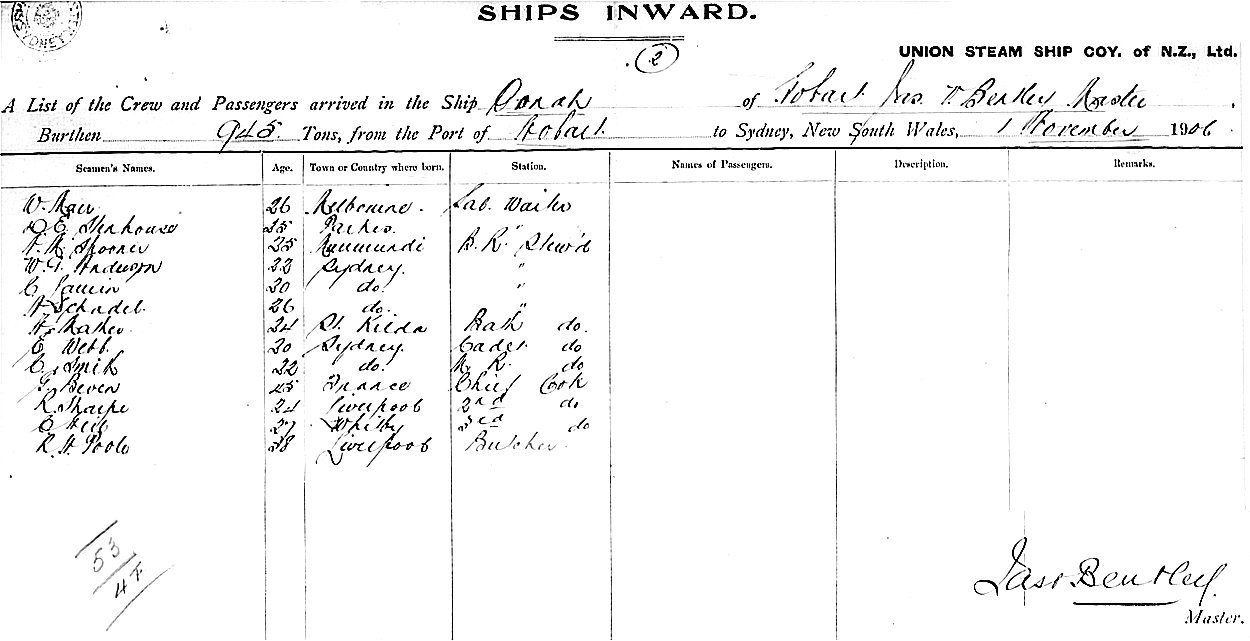 SYDNEY
SHIPS INWARD.
(2)
UNION STEAM SHIP COY. of N.Z., Ltd.
A List of the Crew and Passengers arrived in the Ship Oonah of Hobart Jas. Bentley Master
Burthen 945 Tons, from the Port of Hobart to Sydney, New South Wales, 1 November 1906
Seamen's Names. Age. Town or Country where born. Station. Names of Passengers. Description. Remarks.
W. 26 Melbourne. Sal. Waiter
D. E. Stenhouse 25 Parkes. "
Spooner 25 Eumundi B. R. Stew'd
W. G. Anderson 22 Sydney. "
C. 20 do. "
Schadel 26 do. "
24 St. Kilda Bath do.
C. Webb. 20 Sydney. Cadet do
C. Smith 22 do. do
G. Beven 45 France Chief Cook
R. Sharpe 24 Liverpool 2nd do
27 Whitby 3rd do
R. H. Poole 38 Liverpool Butcher.
53
47
Jas Bentley
Master.